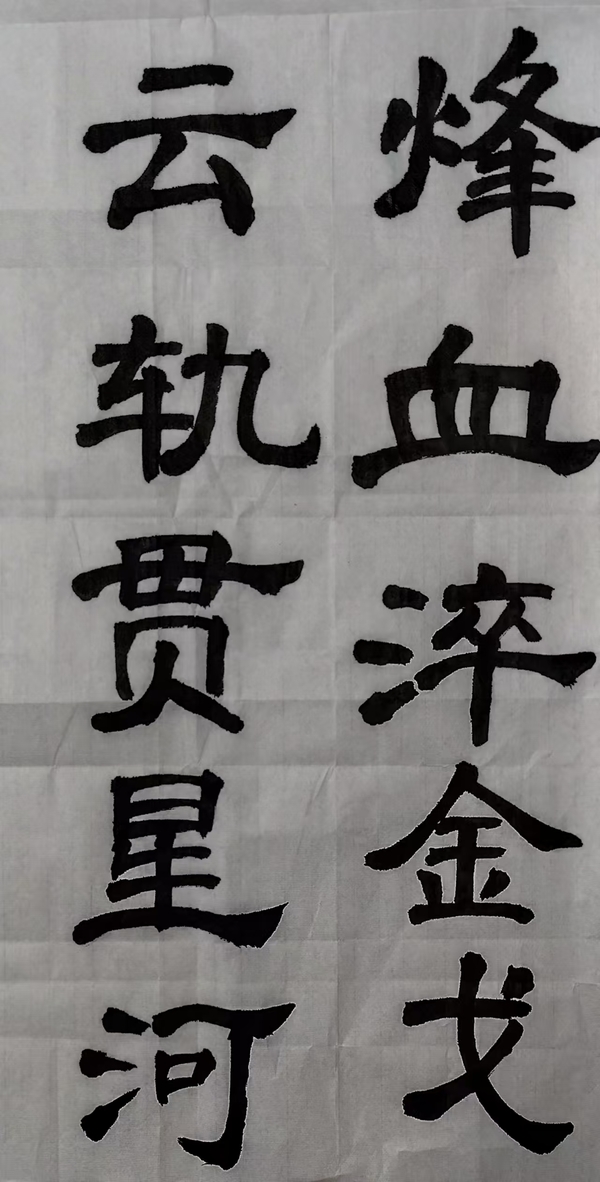 烽血淬金戈
云轨贯星河